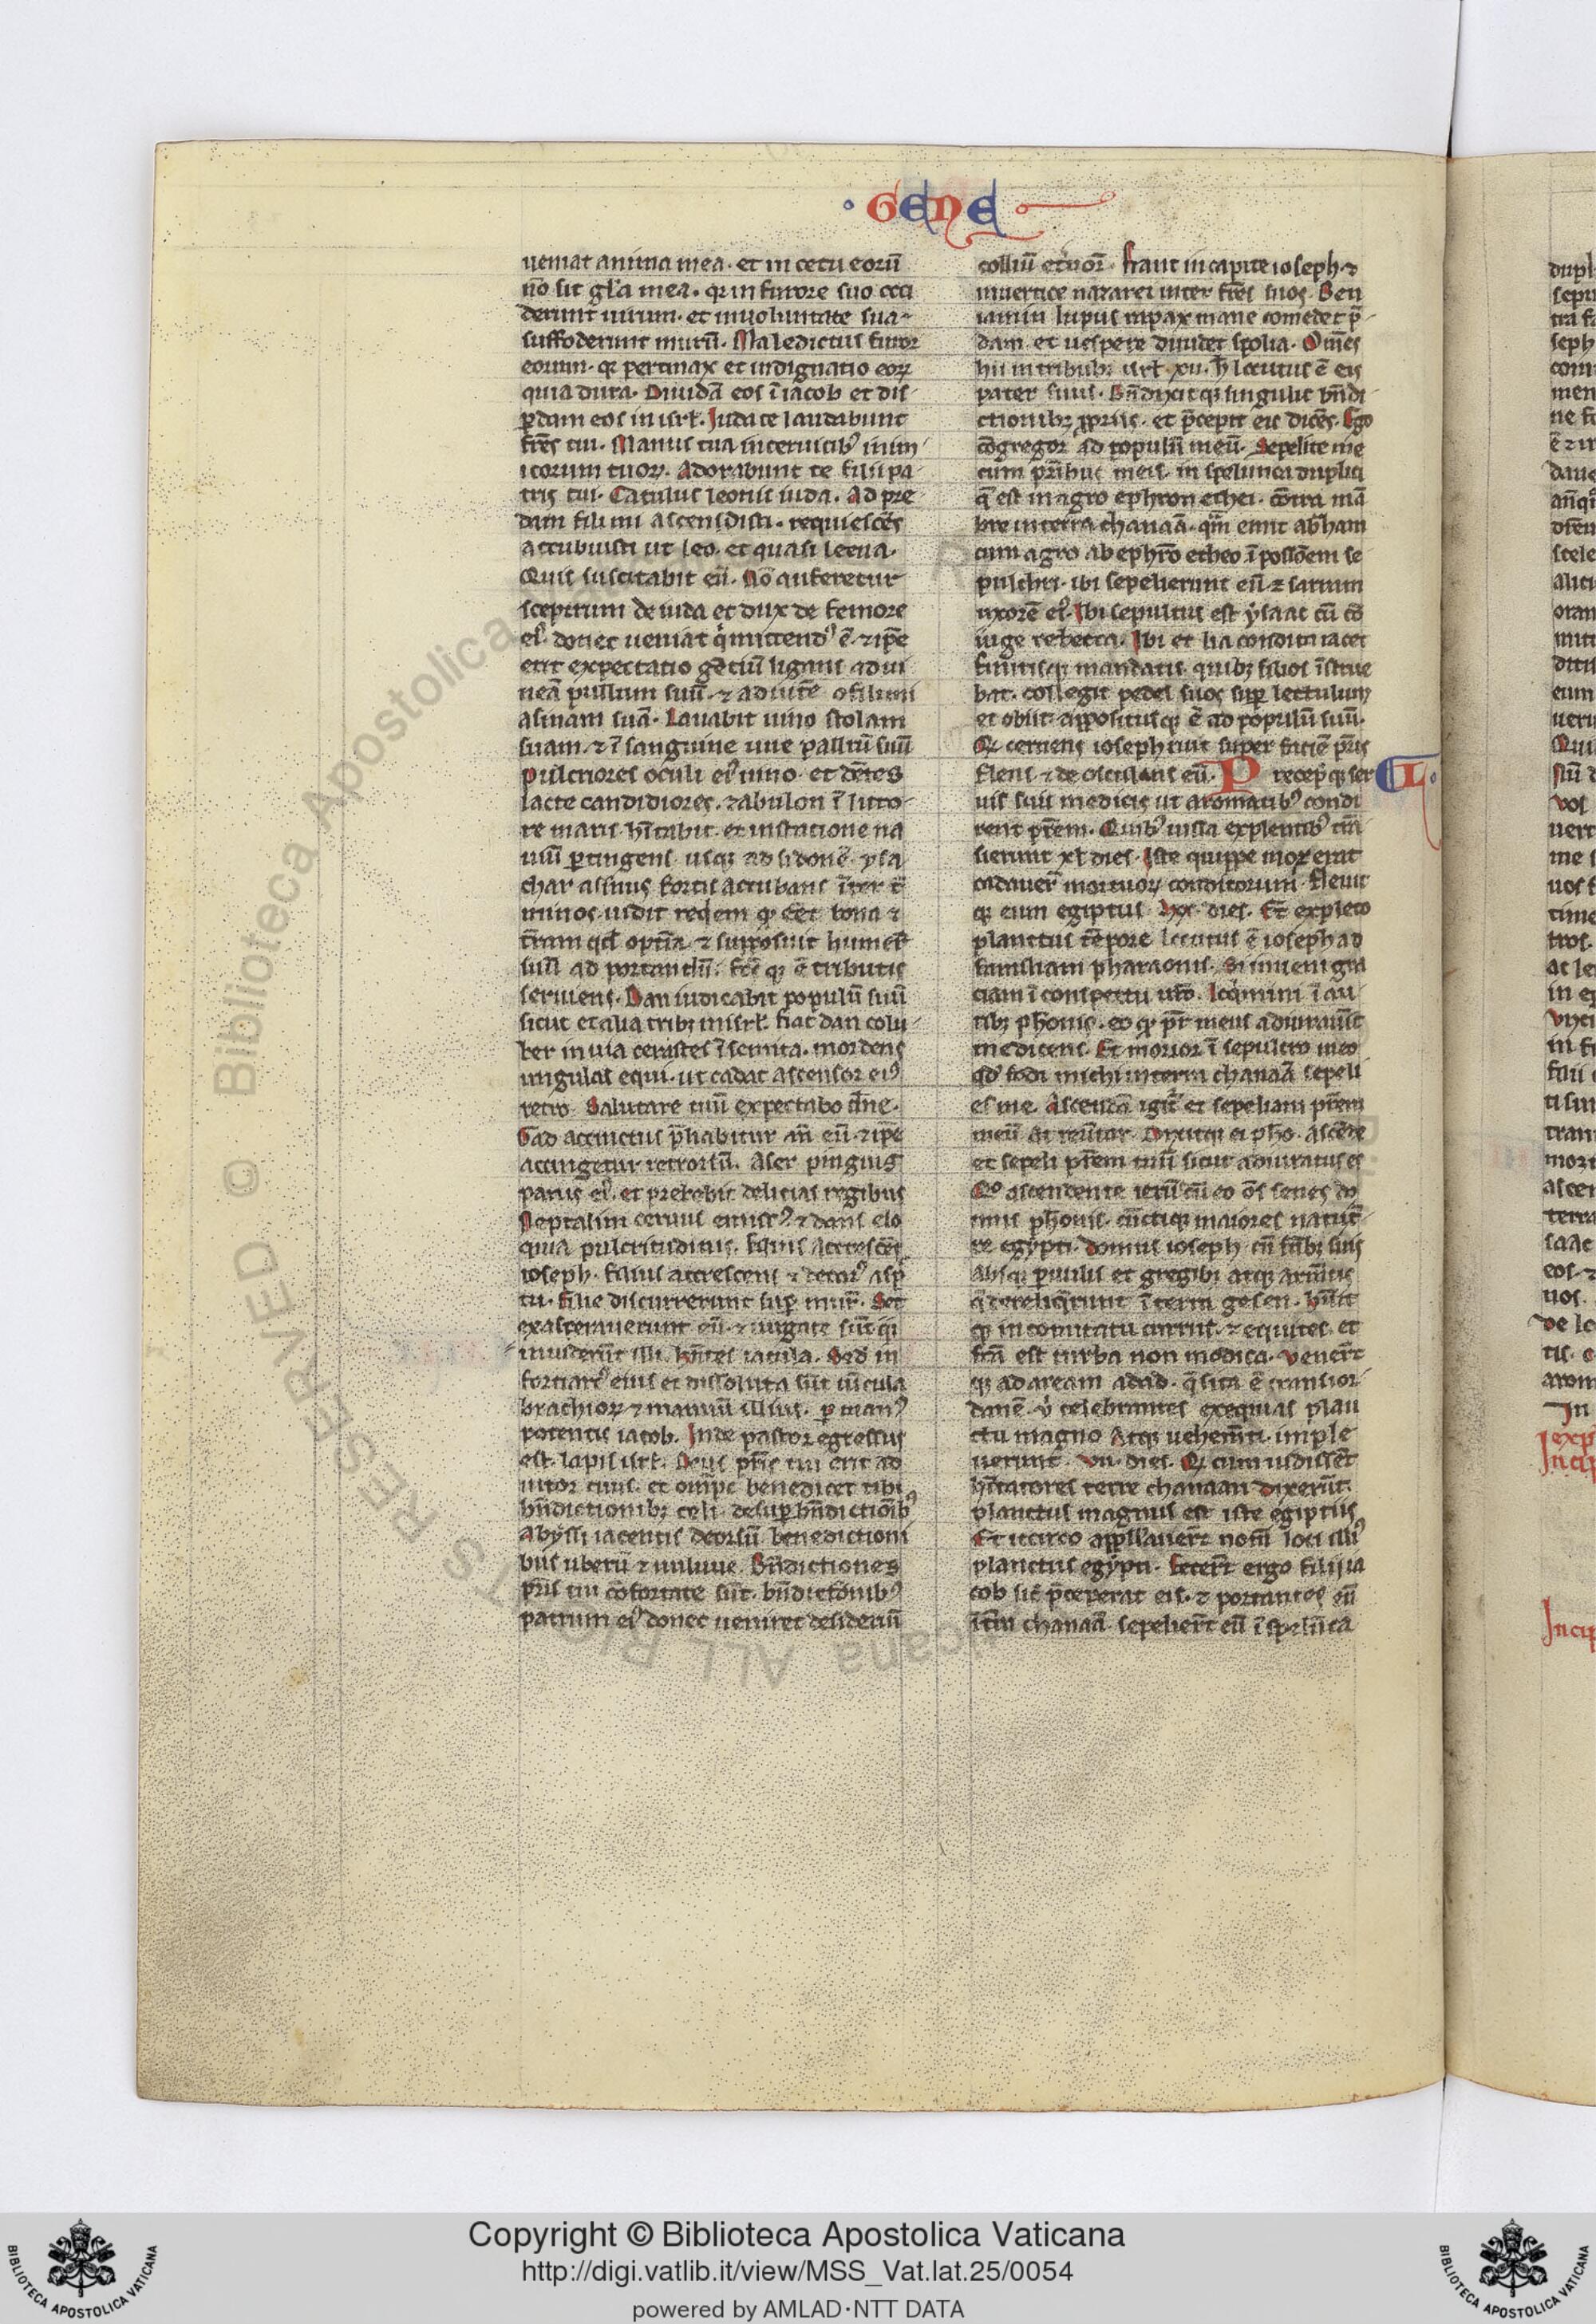 GENE
ueniat anima mea. et in cetu eorū
nō sit gl̄a mea. qr in furore suo occi
derunt uirum. et in uoluntate sua
suffoderunt murū. Maledictus furor
eorum. qr pertinax et indignatio eoꝝ
quia dura. Diuidā eos ī iacob et dis
ꝑdam eos in isrl̄. Iuda te laudabunt
fr̄es tui. Manus tua in ceruicibꝰ inim
icorum tuoꝝ. Adorabunt te filii pa
tris tui. Catulus leonis iuda. Ad pre
dam fili mi ascendisti. requiescēs
accubuisti ut leo. et quasi leena.
Quis suscitabit eū. Nō auferetur
sceptrum de iuda et dux de femore
eiꝰ donec ueniat qͥ mittendꝰ ē. ⁊ ip̄e
erit expectatio gētiū ligans ad ui
neā pullum suū. ⁊ ad uitē o fili mi
asinam suā. Lauabit uino stolam
suam. ⁊ ī sanguine uue palliū suū
pulcriores oculi eiꝰ uino. et dētes
lacte candidiores. zabulon ī litto
re maris hītabit. et in statione na
uiū ꝑtingens usqꝫ ad sidonē. ysa
char asinus fortis accubans īter t̄
minos. uidit requiem qꝫ eēt bona ⁊
t̄ram qd̄ optīa. ⁊ supposuit humerū
suū ad portandū. fc̄s qꝫ ē tributis
seruiens. Dan iudicabit populū suū
sicut et alia tribꝫ in isrl̄. fiat dan colu
ber in uia cerastes ī semita. mordens
ungulas equi. ut cadat ascensor eiꝰ
retro. Salutare tuū expectabo dn̄e.
Gad accinctus p̄liabitur añ eū. ⁊ ip̄e
accingetur retrorsū. Aser pinguis
panis eiꝰ. et prebebit delicias regibus
Neptalim ceruus emissꝰ. ⁊ dans elo
quia pulcritudinis. filius accrescēs
ioseph. filius accrescens ⁊ decorꝰ aspc̄
tu. filie discurrerunt suꝑ mur̄. Set
exasperauerunt eū. ⁊ iurgate sūt qͥ
inuiderūt illi. hn̄tes iacula. Sed in
forti arcꝰ eius et dissoluta sūt uīcula
brachioꝝ ⁊ manuū illius. ꝑ manꝰ
potentis iacob. Inde pastor egressus
est lapis isrl̄. Deus pr̄is tui erit ad
iutor tuus. et omīps benedicet tibi
bn̄dictionibꝫ celi. desuꝑ bn̄dictiōibꝰ
Abyssi iacentis deorsū benedictioni
bus uberū ⁊ uulue. Bn̄dictiones
pr̄is tui cōfortate sūt. bn̄dictōnibꝰ
patrum eiꝰ donec ueniret desideriū
colliū et̄noꝝ. fiant in capite ioseph. ⁊
in uertice nazarei inter fr̄es suos. Ben
iamin lupus rapax mane comedet p̄
dam et uespere diuidet spolia. Om̄es
hii in tribubꝫ isrl̄. xii. h̄ locutus ē eis
pater suus. Bn̄dixit qꝫ singulis bn̄di
ctionibꝫ ꝓpriis. et p̄cepit eis dicēs. Ego
cōgregor ad populū meū. Sepelite me
cum pr̄ibus meis in spelunca duplici
q̄ est in agro ephron ethei. cōtra mā
bre in terra chanaā. quā emit abr̄ham
cum agro ab ephrō etheo ī possōem se
pulchri. ibi sepelierunt eū. ⁊ sarram
uxorē eiꝰ. Ibi sepultus est ysaac cū cō
iuge rebecca. Ibi et lia condita iacet
finitis qꝫ mandatis. quibꝫ filios īstrue
bat. collegit pedes suos suꝑ lectulum
et obiit. appositus qꝫ ē ad populū suū.
Qꝫ cernens ioseph ruit super faciē pr̄is
flens ⁊ deosculans eū. Precep̄ qꝫ ser CL.
uis suis medicis ut aromatibꝰ condi
rent pr̄em. Quibꝰ iussa explentibꝰ trā
sierunt xl dies. Iste quippe mos erat
cadauerū mortuoꝝ conditorum. fleuit
qꝫ eum egiptus lxx dies. Et expleto
planctus tēpore locutus ē ioseph ad
familiam pharaonis. Si inueni gra
ciam ī conspectu ur̄o. loqͥmini ī au
ribꝫ phōnis. eo qꝫ pr̄ meus adiurauit
me dicens. Et morior ī sepulcro meo
qd̄ fodi michi in terra chanaā sepeli
es me. Ascendā igit̄ et sepeliam pr̄em
meū ac reuertar. Dixit qꝫ ei phō. Ascēde
et sepeli pr̄em tuū sicut adiuratus es
Qͦ ascendente ierūt cū eo ōs senes do
mus phōnis. cūctiqꝫ maiores natu t̄
re egypti. Domus ioseph cū fr̄ibꝫ suis
absqꝫ paruulis et gregibꝫ atqꝫ armētis
q̄ dereliquerunt ī terra gesen. hūit
qꝫ in comitatu currus. ⁊ equites. et
fc̄a est turba non modica. Venerūt
qꝫ ad aream adad. q̄ sita ē trans ior
danē. v̄ celebrantes exequias plan
ctu magno Atqꝫ uehemēti. imple
uerunt. vii. dies. Qꝫ cum uidissēt
hītatores terre chanaan dixerūt.
planctus magnus est iste egiptiis
Et iccirco appellauer̄t nom̄ loci illiꝰ
planctus egypti. fecer̄t ergo filii ia
cob sic̄ p̄ceperat eis. ⁊ portantes eū
ī t̄ra chanaā sepelier̄t eū ī spelūca
Copyright © Biblioteca Apostolica Vaticana
http://digi.vatlib.it/view/MSS_Vat.lat.25/0054
powered by AMLAD·NTT DATA